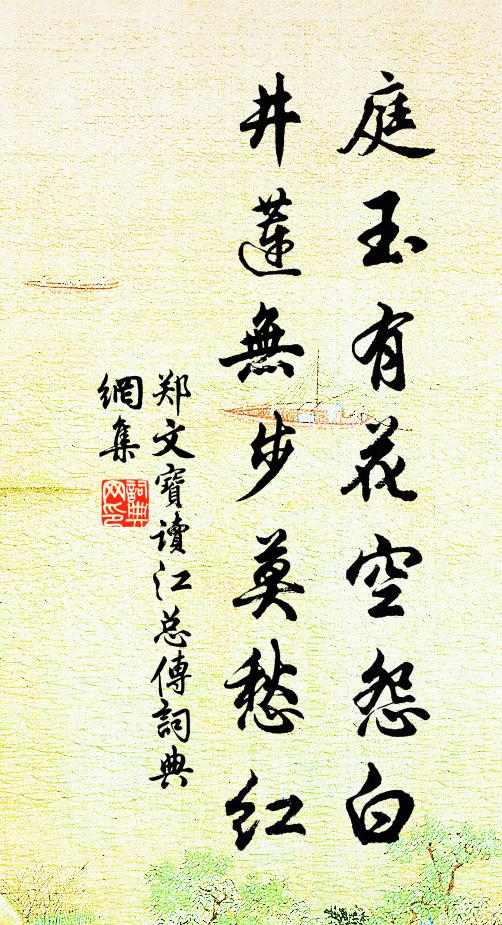 庭玉有花空怨白
井蓮無步莫愁红
郑文寶讀江总傳詞典
網集
詞典
网印